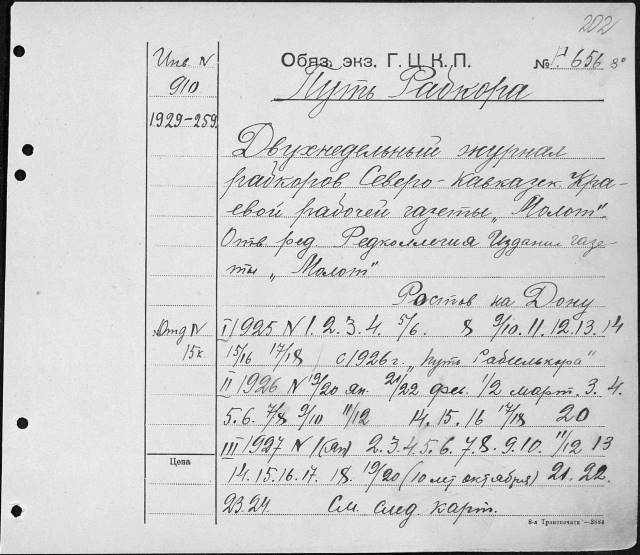 202
Инв. N
910
1929-259
Обяз. экз. Г.Ц.К.П.
№ 656
Путь Рабкора
Двухнедельный журнал
рабкоров Северо-Кавказск. Кра-
евой рабочей газеты „Молот".
Отв. ред. Редколлегия Издание газе-
ты „Молот"
Ростов на Дону
Отд IV
15к.
I 1925 N 1. 2. 3. 4. 5/6. 8 9/10. 11. 12. 13. 14
15/16 17/18 с 1926 г. „Путь Рабселькора"
II 1926 N 19/20 ян. 21/22 фев. 1/2 март. 3. 4.
5. 6. 7/8 9/10 11/12 14. 15. 16 17/18 20
III 1927 N 1 (ян) 2. 3. 4. 5. 6. 7. 8. 9. 10. 11/12 13
Цена
14. 15. 16. 17. 18. 19/20 (10 лет октября) 21. 22.
23. 24. См. след. карт.
8-я Транспечать—3884